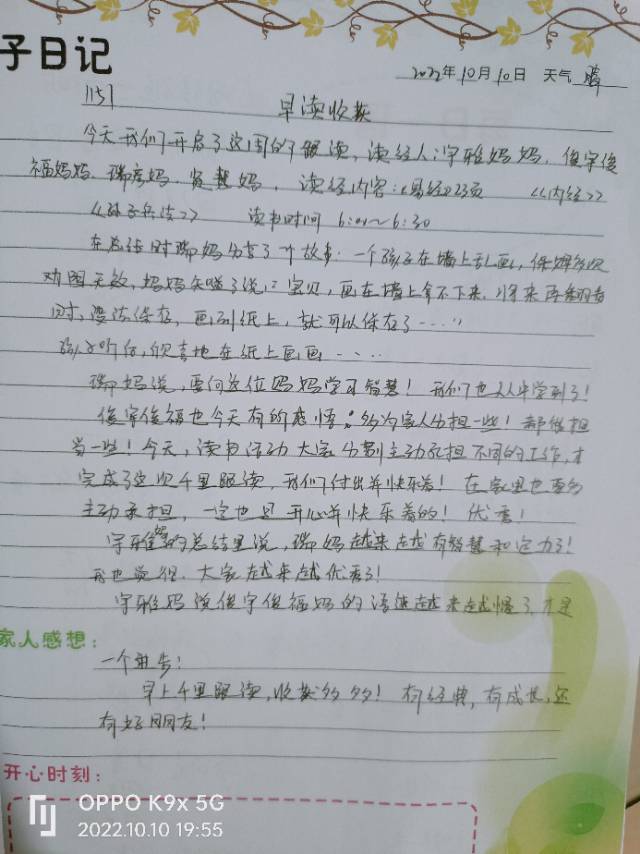 子日记
2022年10月10日 天气 晴
1151
早读收获
今天我们开启了这周的千跟读,读经人:宇雅妈妈、俊宇俊
福妈妈、瑞彦妈、贤慧妈,读经内容:《易经》23页 《内经》
《孙子兵法》 读书时间 6:01~6:30
在总结时瑞妈分享了个故事:一个孩子在墙上乱画,保姆多次
劝阻无效,妈妈知道了说:"宝贝,画在墙上拿不下来,将来再看
时,没法保存,画到纸上,就可以保存了……"
孩子听后,欣喜地在纸上画画……
瑞妈说,要向这位妈妈学习智慧!我们也从中学到了!
俊宇俊福也今天有的感悟:多为家人分担一些!都做担
当一些!今天,读书活动大家分别主动承担不同的工作,才
完成了这次千里跟读,我们付出并快乐着!在家里也要多
主动承担,一定也是开心并快乐着的!优秀!
宇雅妈的总结里说,瑞妈越来越有智慧和定力了!
我也觉得,大家越来越优秀了!
宇雅妈说俊宇俊福妈的语速越来越慢了,才是
家人感想:
一个
早上千里跟读,收获多多!有经典,有成长,还
有好朋友!
开心时刻:
OPPO K9x 5G
2022.10.10 19:55